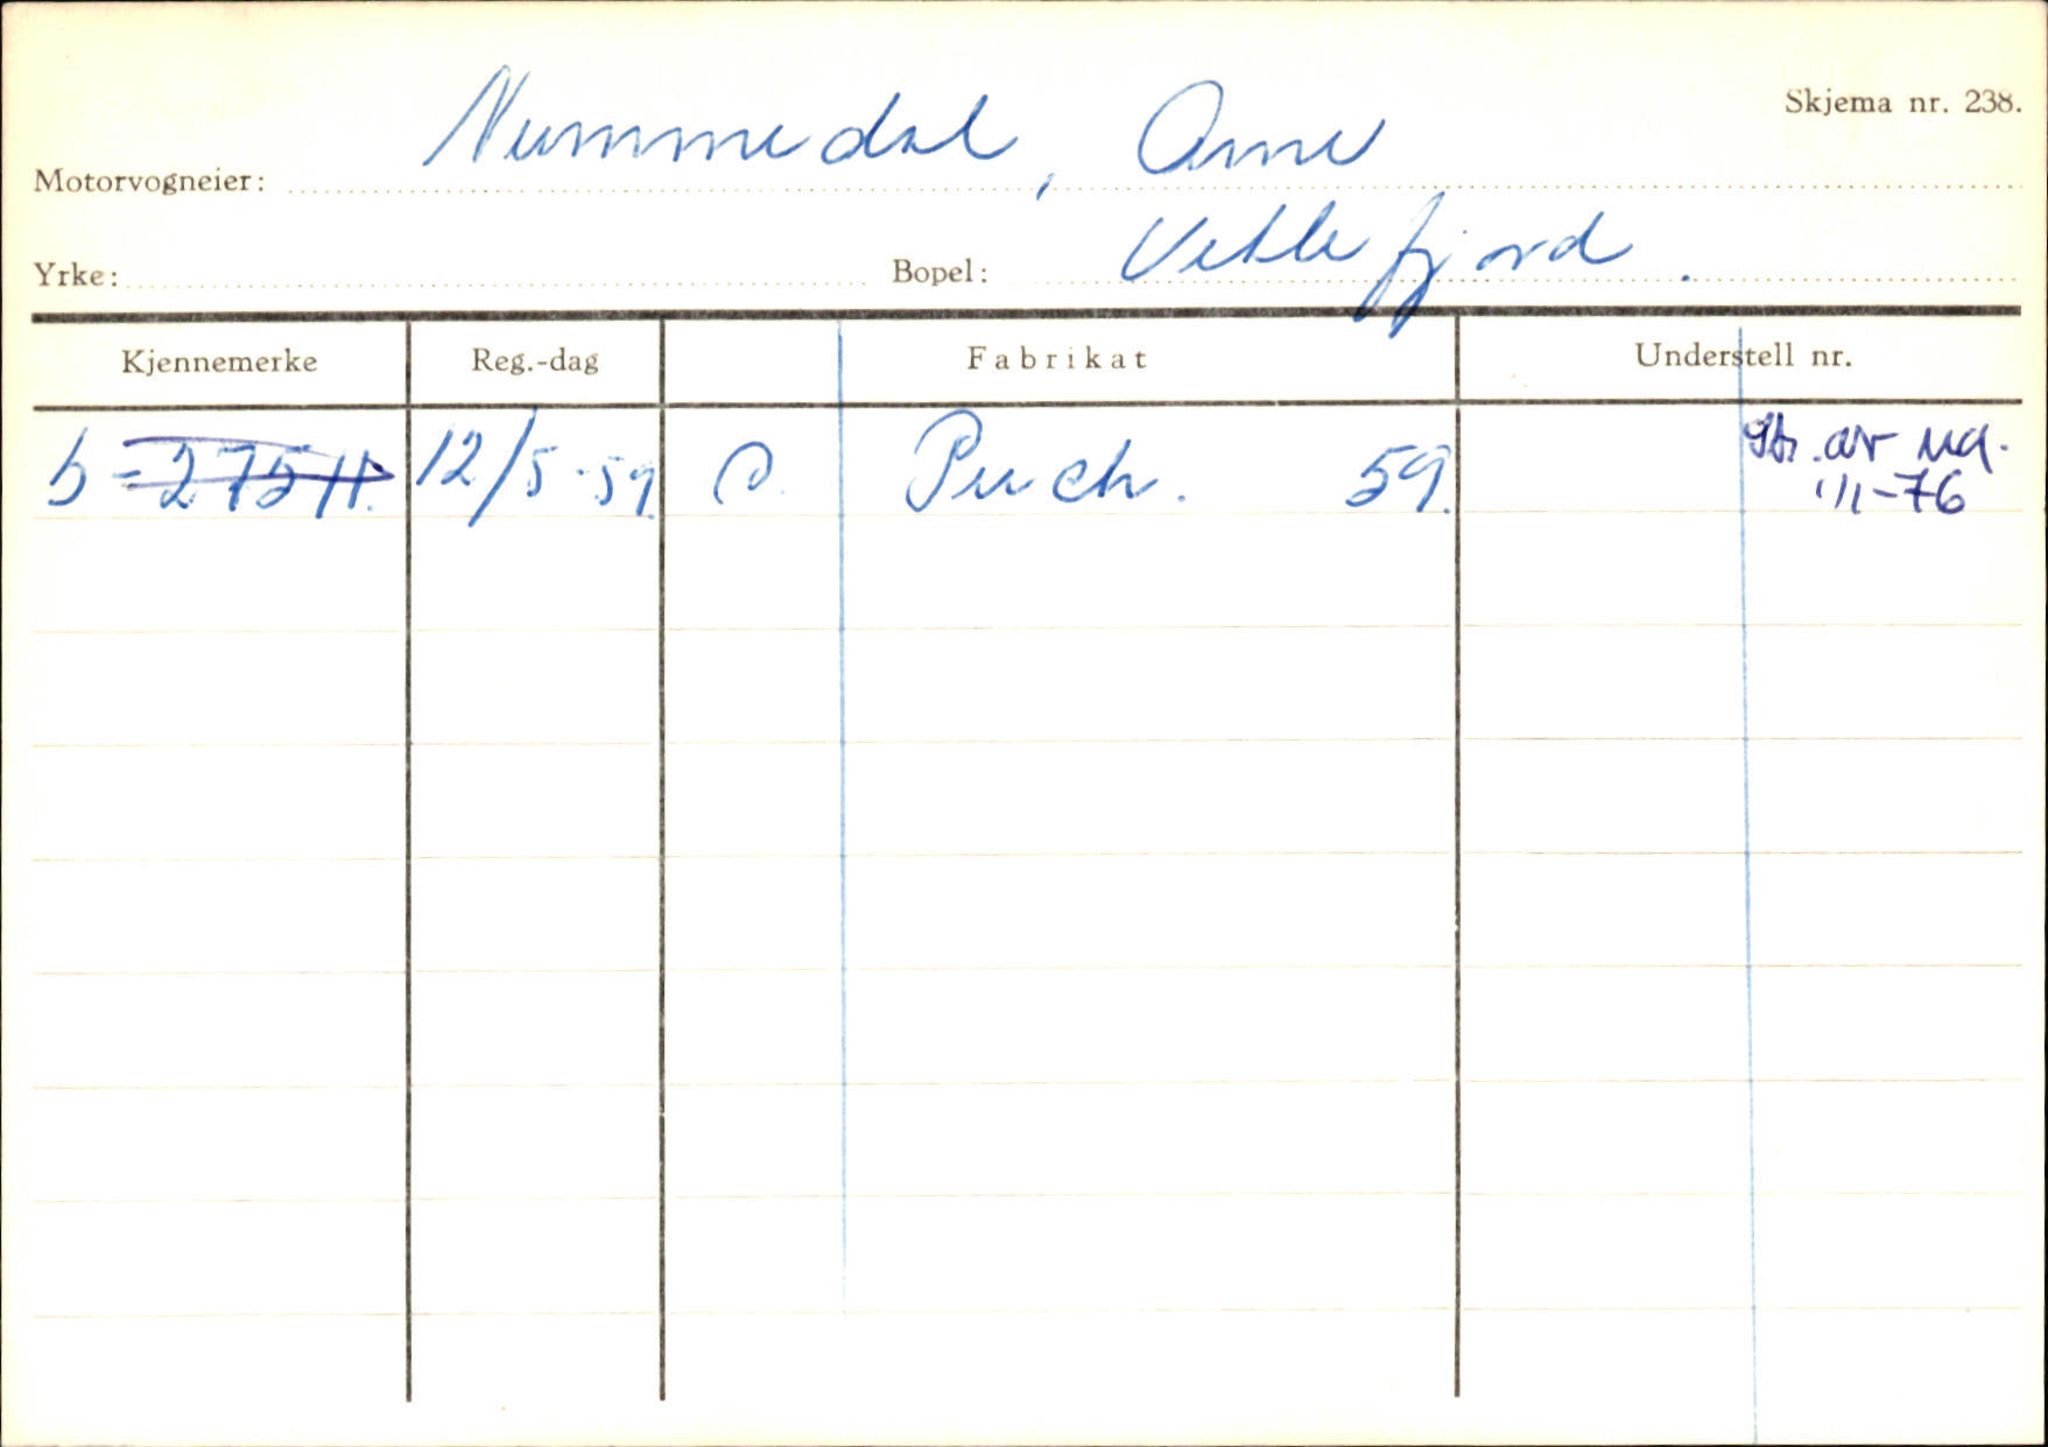 Skjema nr. 238.
Motorvogneier: Nummedal, Arne
Yrke: Bopel: Vetlefjord.
Kjennemerke Reg.-dag Fabrikat Understell nr.
12/5-59. Puch. 59. av
1/1-76